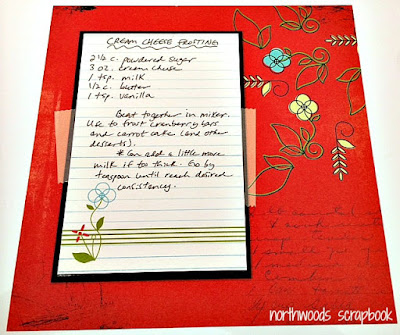 CREAM CHEESE FROSTING
2 1/2 c. powdered sugar
3 oz. cream cheese
1 tsp. milk
1/2 c. butter
1 tsp. vanilla
Beat together in mixer.
Use to frost cranberry bars
and carrot cake (and other
desserts).
* Can add a little more
milk if too thick. Go by
teaspoon until reach desired
consistency.
northwoods scrapbook